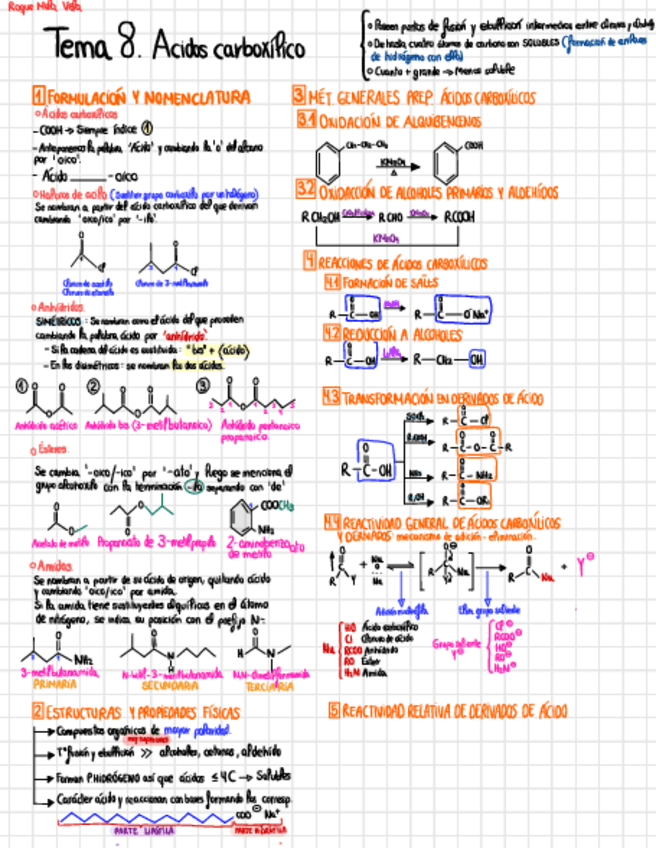 Roque Mula, Vela,
Tema 8. Acidos carboxílico
o Poseen puntos de fusión y ebullición intermedios entre
o De hasta cuatro átomos de carbono son SOLUBLES (formación de enlaces
de hidrógeno con el
o Cuanto + grande → Menos soluble
1 FORMULACIÓN Y NOMENCLATURA
o Ácidos carboxílicos
- COOH → Siempre índice 1
- Anteponemos la palabra "Ácido" y cambiando la "o" del alcano
por "oico".
- Ácido ______ -oico
o Haluros de acilo (Sustituir grupo carboxilo por un halógeno)
Se nombran a partir del ácido carboxílico del que derivan
cambiando "oico/ico" por "-ilo".
Cl
Cl
Cloruro de acetilo
Cloruro de etanoilo
Cloruro de 3-metilbutanoilo
o Anhídridos
SIMÉTRICOS: Se nombran como el ácido del que proceden
cambiando la palabra ácido por "anhídrido".
- Si la cadena del ácido es sustituida: "bis" + (ácido)
- En los disimétricos: se nombran los dos ácidos.
1 2 3
Anhídrido acético
Anhídrido bis (3-metilbutanoico)
Anhídrido pentanoico
propanoico.
o Ésteres
Se cambia "-oico/-ico" por "-ato" y luego se menciona el
grupo alcohoxilo con la terminación -ilo separando con "de"
COOCH3
NH2
Acetato de metilo
Propanoato de 3-metilpropilo
2-aminobenzoato
de metilo
o Amidas
Se nombran a partir de su ácido de origen, quitando ácido
y cambiando "oico/ico" por amida.
Si la amida tiene sustituyentes alquílicos en el átomo
de nitrógeno, se indica su posición con el prefijo N-
NH2
3-metilbutanamida
PRIMARIA
SECUNDARIA
N,N-dimetilformamida
TERCIARIA
2 ESTRUCTURAS Y PROPIEDADES FÍSICAS
Compuestos orgánicos de mayor polaridad.
Tª fusión y ebullición >> alcoholes, cetonas, aldehído
Forman P.HIDRÓGENO así que ácidos ≤ 4C → Solubles
Carácter ácido y reaccionan con bases formando las corresp.
COO⊖ Na⁺
PARTE LIPÓFILA
PARTE HIDRÓFILA
3 MÉT. GENERALES PREP. ÁCIDOS CARBOXÍLICOS
3.1 OXIDACIÓN DE ALQUIBENCENOS
CH2-CH2-CH3
KMnO4
Δ
COOH
3.2 OXIDACCIÓN DE ALCOHOLES PRIMARIOS Y ALDEHÍDOS
RCH2OH → RCHO → RCOOH
KMnO4
4 REACCIONES DE ÁCIDOS CARBOXÍLICOS
4.1 FORMACIÓN DE SALES
R-C-OH NaOH R-C-O⁻Na⁺
4.2 REDUCCIÓN A ALCOHOLES
R-C-OH LiAlH4 R-CH2-OH
4.3 TRANSFORMACIÓN EN DERIVADOS DE ÁCIDO
R-C-OH
SOCl2 R-C-Cl
RCOOH R-C-O-C-R
NH3 R-C-NH2
R'OH R-C-OR'
4.4 REACTIVIDAD GENERAL DE ÁCIDOS CARBOXÍLICOS
Y DERIVADOS: mecanismo de adición-eliminación.
Adición nucleófila
Elim. grupo saliente
HO Ácido carboxílico
Cl Cloruro de ácido
RCOO Anhídrido
RO Ester
H2N Amida
Nu
Grupo saliente
Y⊖
Cl⊖
RCOO⊖
HO⊖
RO⊖
H2N⊖
5 REACTIVIDAD RELATIVA DE DERIVADOS DE ÁCIDO